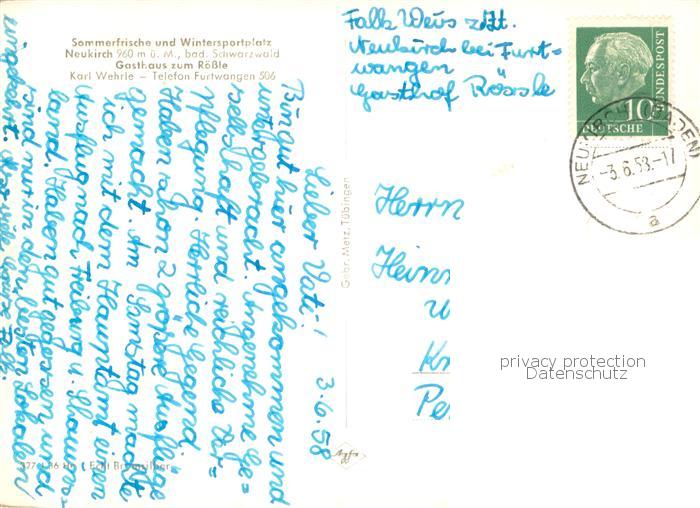 Sommerfrische und Wintersportplatz
Neukirch 960 m ü. M., bad. Schwarzwald
Gasthaus zum Rößle
Karl Wehrle – Telefon Furtwangen 506
Falk Weis zZt.
Neukirch bei Furt-
wangen
Gasthof Rössle
BUNDESPOST
10
DEUTSCHE
NEUKIRCH (BADEN)
-3.6.58.-17
a
Lieber Vati! 3.6.58
Bin gut hier angekommen und
untergebracht. Angenehme Ge=
sellschaft und reichliche Ver=
pflegung. Herrliche Gegend.
Haben schon 2 größere Ausflüge
gemacht. Am Samstag machte
ich mit dem Hauptamt einen
Ausflug nach Freiburg u.
land. Haben gut gegessen und
sind nur in den besten Lokalen
eingekehrt.
Gebr. Metz, Tübingen
Herrn
Hein
Kr
Pe
privacy protection
Datenschutz